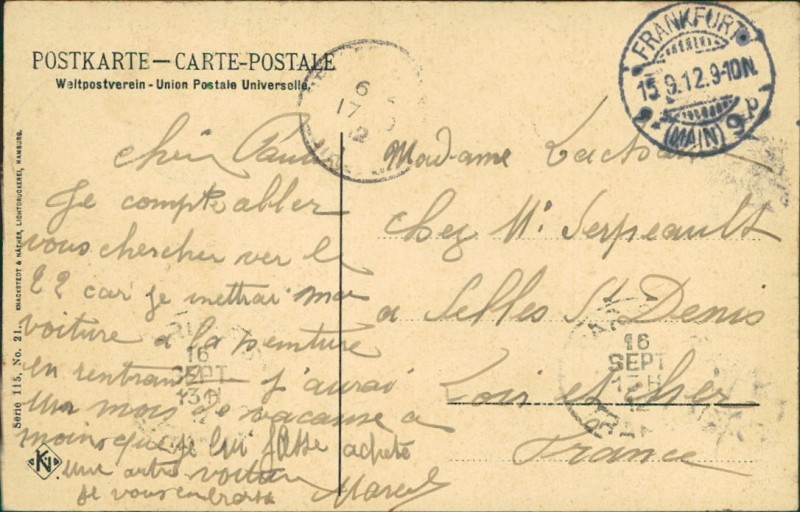 POSTKARTE — CARTE-POSTALE
Weltpostverein - Union Postale Universelle.
FRANKFURT
15.9.12.9-10N.
(MAIN) 9
6
17
12
Je compte aller
vous chercher ver le
22 car je mettrai ma
voiture a la peinture
en rentrant j'aurai
un mois de vacanse a
moins que je lui fasse acheté
une autre voiture
je vous embrasse
Marcel
Madame
chez Mr Serpeault
a Selles St Denis
Loir et Cher
France
16
SEPT
13H
16
SEPT
13H
12
Serie 115, No. 21. KNACKSTEDT & NÄTHER, LICHTDRUCKEREI, HAMBURG.